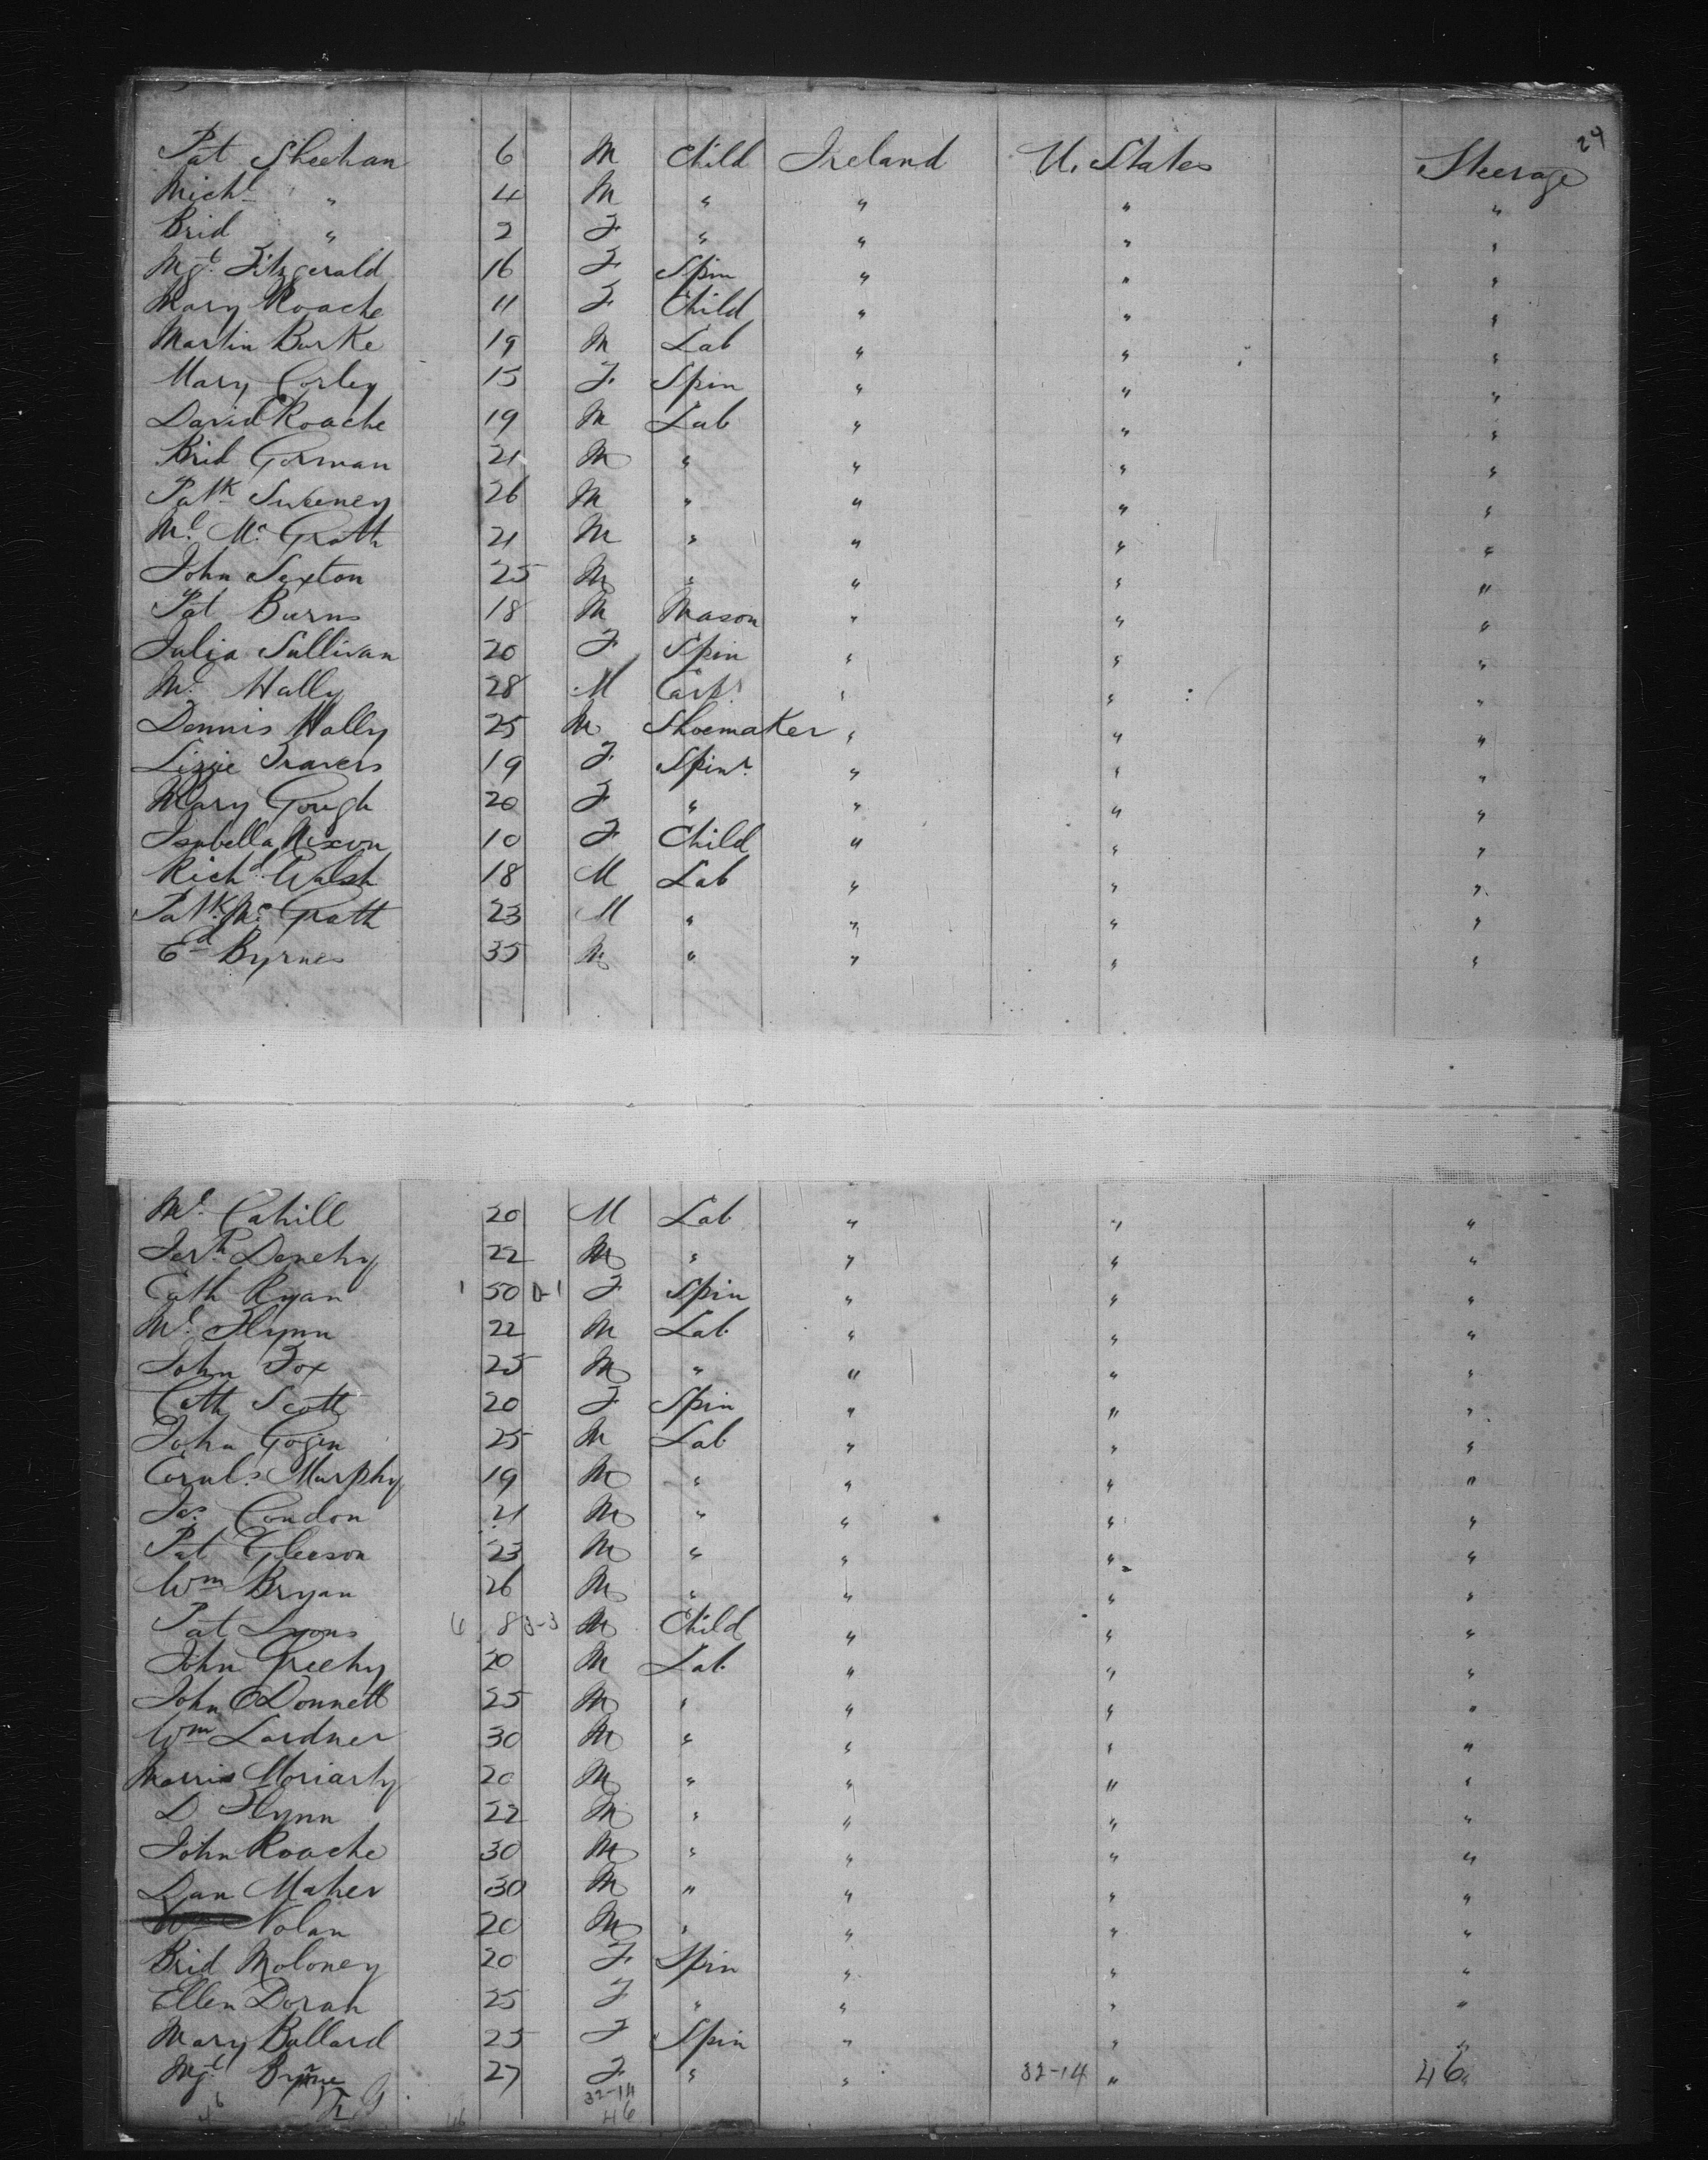 24
Pat Sheehan 6 M Child Ireland U. States Steerage
Michl " 4 M " " " "
Brid " 2 F " " " "
Mgt Fitzgerald 16 F Spin " " "
Mary Roache 11 F Child " " "
Martin Burke 19 M Lab " " "
Mary Corley 15 F Spin " " "
David Roache 19 M Lab " " "
Brid Gorman 21 M " " " "
Patk Sweeney 26 M " " " "
Ml Mc Grath 21 M " " " "
John Sexton 25 M " " " "
Pat Burns 18 M Mason " " "
Julia Sullivan 20 F Spin " " "
Ml Hally 28 M Carpr " " "
Dennis Hally 25 M Shoemaker " " "
Lizzie Travers 19 F Spinr " " "
Mary Gough 20 F " " " "
Isabella Nixon 10 F Child " " "
Richd Walsh 18 M Lab " " "
Patk Mc Grath 23 M " " " "
Ed Byrnes 35 M " " " "
Ml Cahill 20 M Lab " " "
Jerh Denehy 22 M " " " "
Cath Ryan 1 50 D-1 F Spin " " "
Ml Flynn 22 M Lab " " "
John Fox 25 M " " " "
Cath Scott 20 F Spin " " "
John Gogin 25 M Lab " " "
Cornls Murphy 19 M " " " "
Jas Condon 21 M " " " "
Pat Gleeson 23 M " " " "
Wm Bryan 26 M " " " "
Pat Lyons 6 8 3-3 M Child " " "
John Greehy 20 M Lab " " "
John O Donnell 25 M " " " "
Wm Lardner 30 M " " " "
Morris Moriarty 20 M " " " "
D Flynn 22 M " " " "
John Roache 30 M " " " "
Dan Maher 30 M " " " "
Wm Nolan 20 M " " " "
Brid Moloney 20 F Spin " " "
Ellen Doran 25 F " " " "
Mary Ballard 25 F Spin " " "
Mgt Byrne 27 F " " 32-14 " 46 "
32-14
46 46